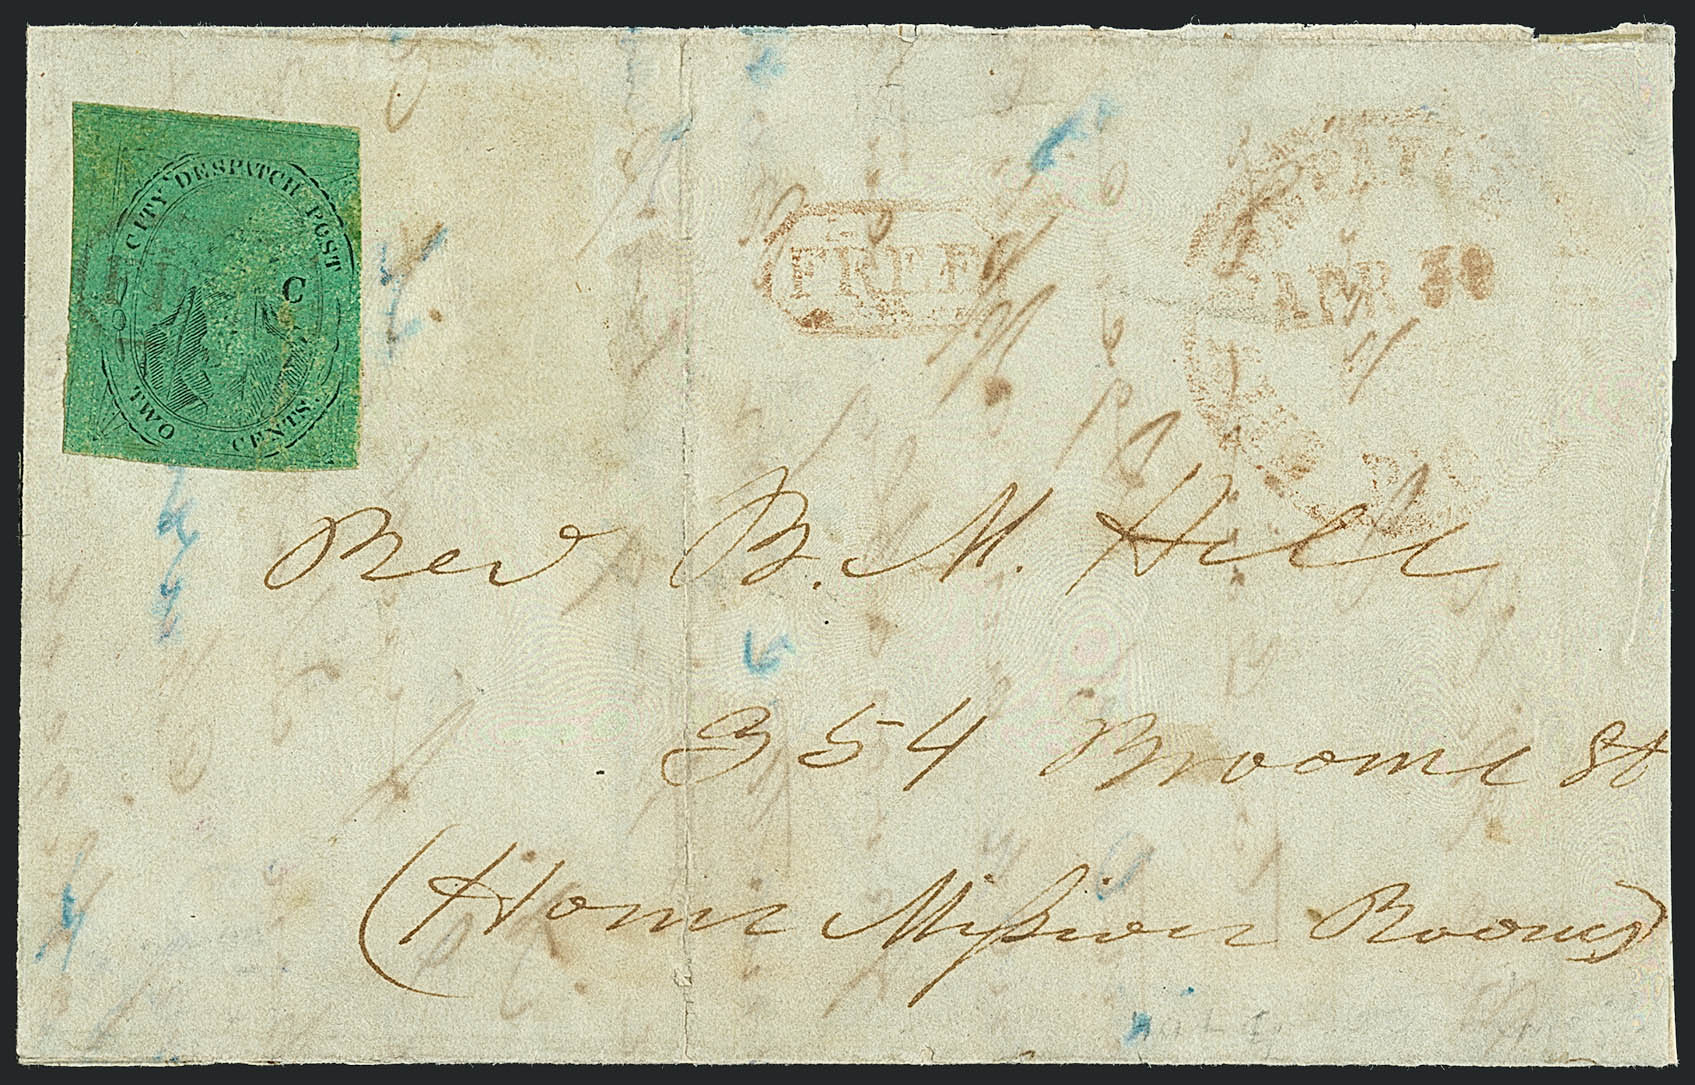 CITY DESPATCH POST
C
TWO CENTS.
FREE
APR 30
Rev B. M. Hill
354 Broome St
(Home Mission Rooms)